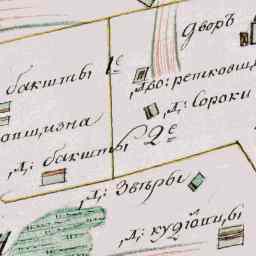 Дворъ
бакшты 1е
Дво: ретковщ
Д: Сороки
опщизна
Д: бакшты 2е
Д: Звѣры
Д: кудѣ